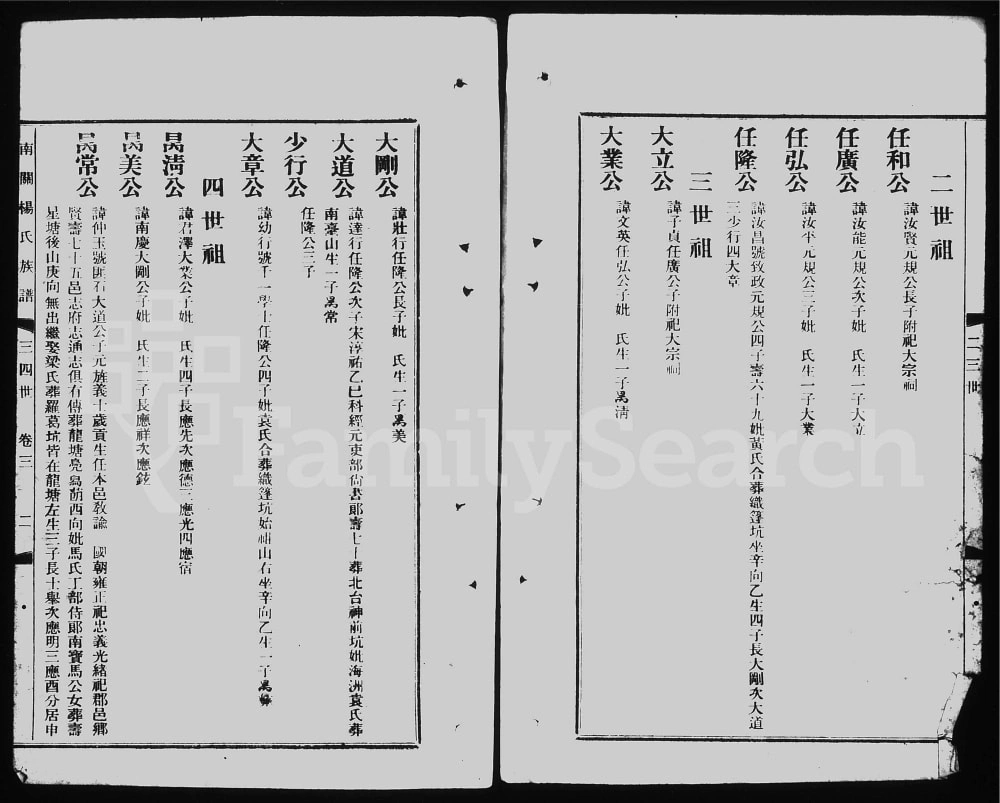 二三世
二世祖
任和公
諱汝賢元規公長子附祀大宗祠
任廣公
諱汝能元規公次子妣　氏生一子大立
任弘公
諱汝平元規公三子妣　氏生一子大業
任隆公
諱汝昌號致政元規公四子壽六十九妣黃氏合葬織篷坑坐辛向乙生四子長大剛次大道
三少行四大章
三世祖
大立公
諱子貞任廣公子附祀大宗祠
大業公
諱文英任弘公子妣　氏生一子禼淸
大剛公
諱壯行任隆公長子妣　氏生一子禼美
大道公
諱達行任隆公次子宋淳祐乙巳科經元吏部尙書郞壽七十葬北台神前坑妣海洲袁氏葬
南臺山生一子禼常
少行公
任隆公三子
大章公
諱幼行號千一學士任隆公四子妣袁氏合葬織篷坑始祖山右坐辛向乙生一子禼
四世祖
禼淸公
諱君澤大業公子妣　氏生四子長應先次應德三應光四應宿
禼美公
諱南慶大剛公子妣　氏生二子長應祥次應鉉
禼常公
諱仲玉號匪石大道公子元旌義士歲貢生任本邑敎諭　國朝雍正祀忠義光緖祀郡邑鄕
賢壽七十五邑志府志通志俱有傳葬龍塘凫島荫西向妣馬氏工部侍郞南寶馬公女葬壽
星塘後山庚向　無出繼娶梁氏葬羅葛坑皆在龍塘左生三子長士舉次應明三應酉分居申
南關楊氏族譜
三四世
卷三
二
FamilySearch